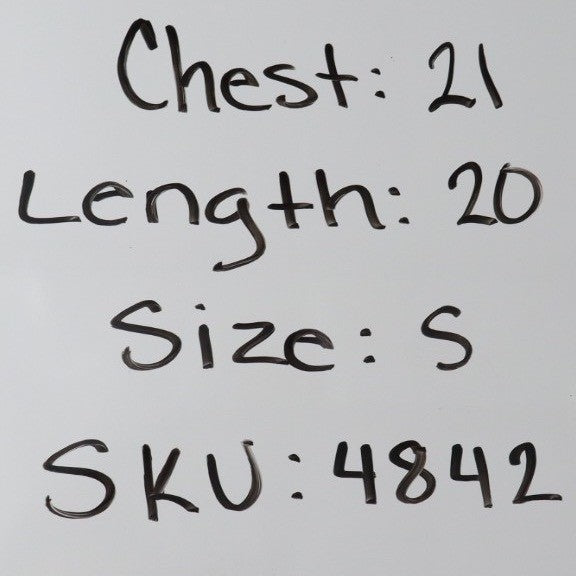 Chest: 21
Length: 20
Size: S
SKU: 4842